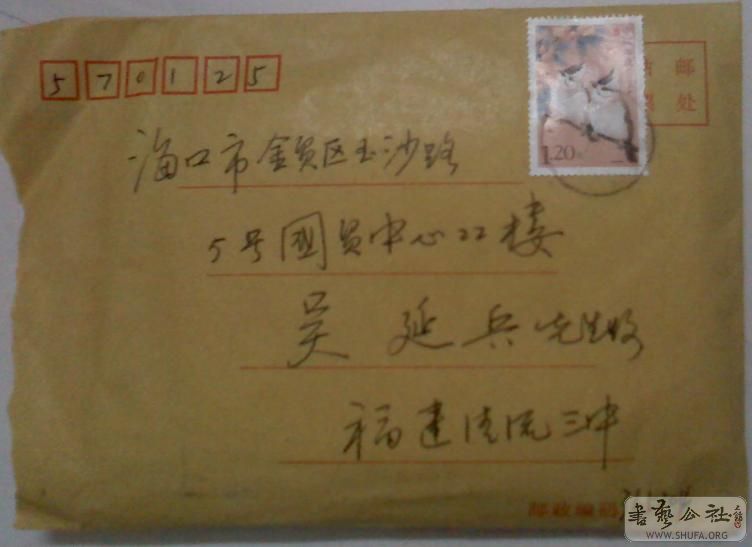 570125
1.20元
邮
处
海口市金贸区玉沙路
5号國贸中心22楼
吴延兵先生收
福建清流三中
邮政编码
書藝公社
WWW.SHUFA.ORG